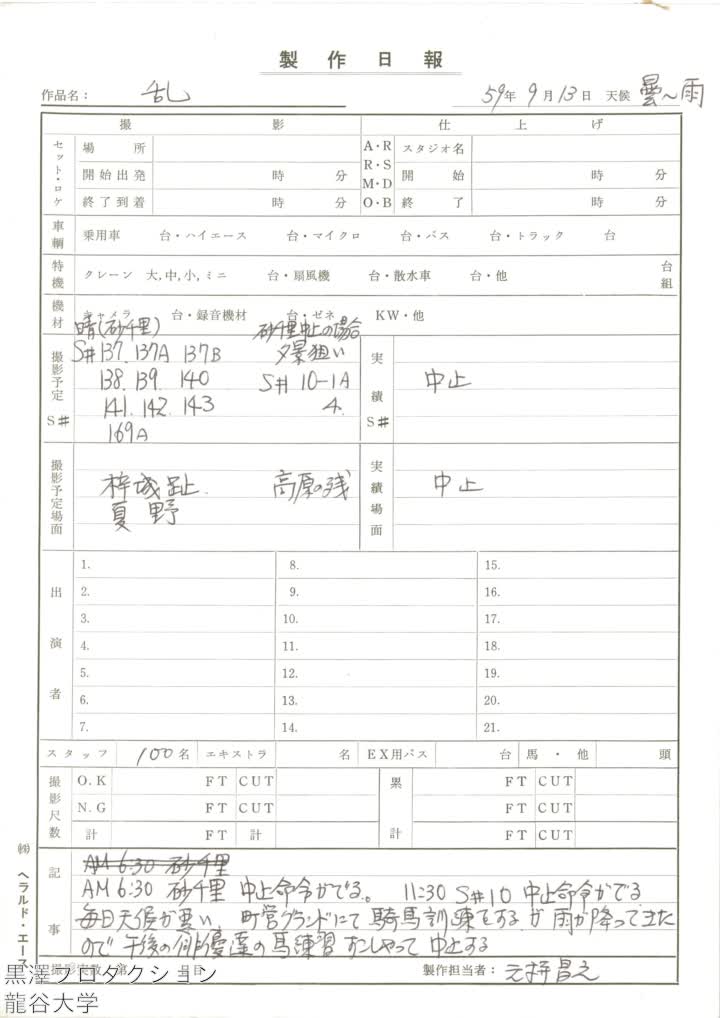 製作日報
作品名： 乱 59年 9月13日 天候 曇〜雨
撮影 仕上げ
セット・ロケ 場所 A・R スタジオ名
開始出発 時 分 R・S 開始 時 分
M・D
終了到着 時 分 O・B 終了 時 分
車輌 乗用車 台・ハイエース 台・マイクロ 台・バス 台・トラック 台
特機 クレーン 大,中,小,ミニ 台・扇風機 台・散水車 台・他 台組
機材 キャメラ 台・録音機材 台・ゼネ KW・他
晴(砂千里) 砂千里中止の場合
撮影予定 S# S#137. 137A 137B 夕景狙い 実績 S# 中止
138. 139. 140 S# 10-1A
141. 142. 143 4.
169A
撮影予定場面 梓城趾. 高原の残 実績場面 中止
夏野
出演者
1. 8. 15.
2. 9. 16.
3. 10. 17.
4. 11. 18.
5. 12. 19.
6. 13. 20.
7. 14. 21.
スタッフ 100名 エキストラ 名 EX用バス 台 馬・他 頭
撮影尺数 O.K FT CUT 累計 FT CUT
N.G FT CUT FT CUT
計 FT 計 FT CUT
記事 AM 6:30 砂千里
AM 6:30 砂千里 中止命令がでる。 11:30 S#10 中止命令がでる
毎日天候が悪い. 町営グランドにて 騎馬訓練をするが 雨が降ってきた
ので 午後の俳優達の馬練習 すこしやって 中止する
撮影実数 第 日目 製作担当者：
㈱ ヘラルド・エース
黒澤プロダクション
龍谷大学